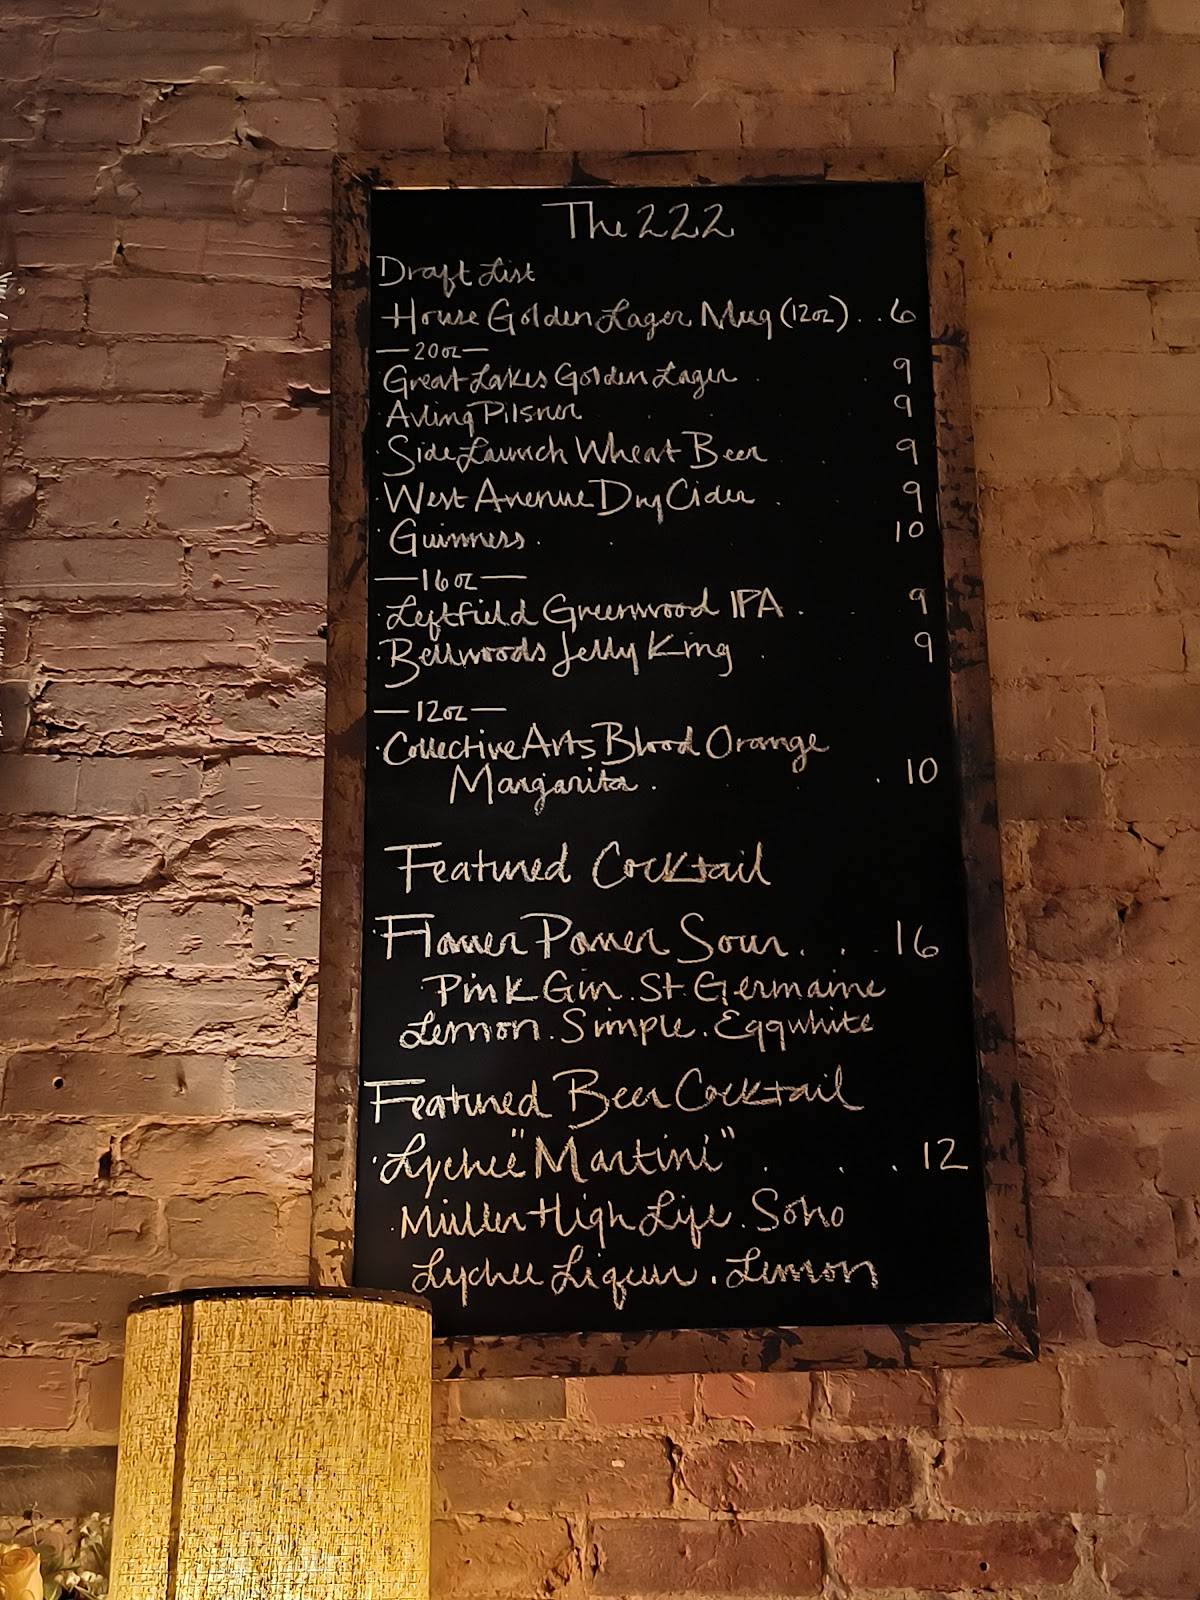 The 222
Draft List
House Golden Lager Mug (12oz) . . 6
—20oz—
Great Lakes Golden Lager . . 9
Avling Pilsner . . 9
· Side Launch Wheat Beer . . 9
· West Avenue Dry Cider . 9
· Guinness . . . 10
—16oz—
· Leftfield Greenwood IPA . . 9
· Bellwoods Jelly King . . 9
—12oz—
· Collective Arts Blood Orange
Margarita . . 10
Featured Cocktail
Flower Power Sour . . . 16
Pink Gin . St. Germaine
Lemon . Simple . Eggwhite
Featured Beer Cocktail
· Lychee "Martini" . . . 12
· Miller High Life . Soho
Lychee Liqeur . Lemon